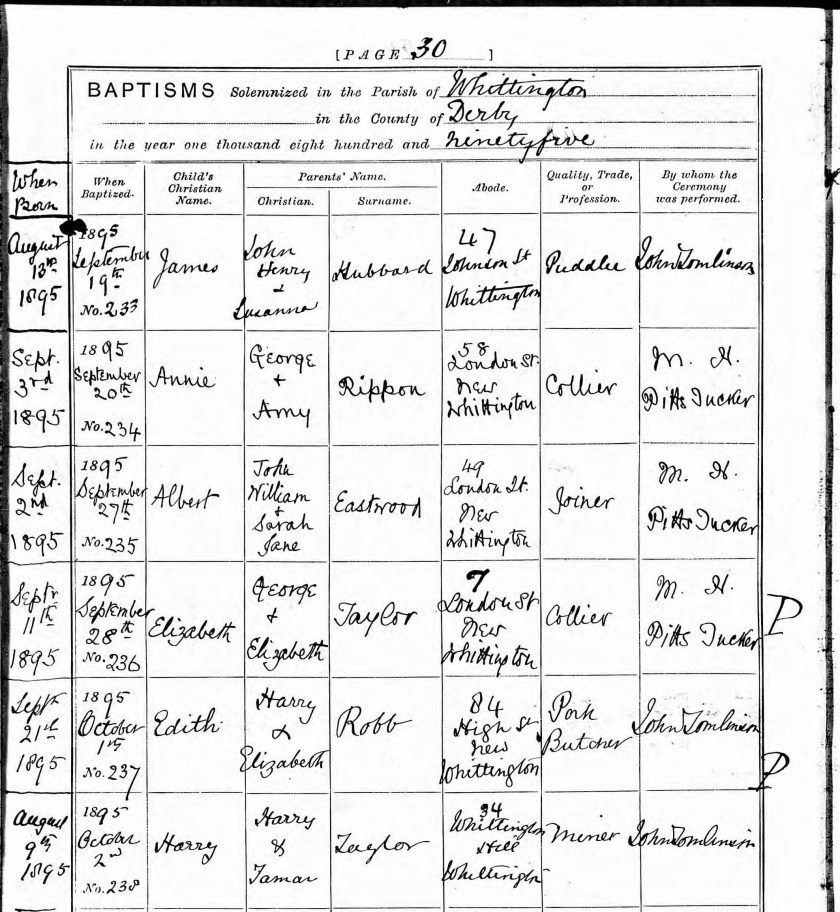 [PAGE 30]
BAPTISMS Solemnized in the Parish of Whittington
in the County of Derby
in the year one thousand eight hundred and ninety five
When Born
When Baptized.
Child's Christian Name.
Parents' Name.
Christian.
Surname.
Abode.
Quality, Trade, or Profession.
By whom the Ceremony was performed.
August
13th
1895
1895
September
19th
No. 233
James
John
Henry
&
Susanna
Hubbard
47
Johnson St
Whittington
Puddler
John Tomlinson
Sept.
3rd
1895
1895
September
20th
No. 234
Annie
George
+
Amy
Rippon
58
London St.
New
Whittington
Collier
M. H.
Pitts Tucker
Sept.
2nd
1895
1895
September
27th
No. 235
Albert
John
William
+
Sarah
Jane
Eastwood
49
London St.
New
Whittington
Joiner
M. H.
Pitts Tucker
Septr
11th
1895
1895
September
28th
No. 236
Elizabeth
George
+
Elizabeth
Taylor
7
London St
New
Whittington
Collier
M. H.
Pitts Tucker
P
Septr
21st
1895
1895
October
1st
No. 237
Edith
Harry
&
Elizabeth
Robb
84
High St
New
Whittington
Pork
Butcher
John Tomlinson
P
August
9th
1895
1895
October
2nd
No. 238
Harry
Harry
&
Tamar
Taylor
34
Whittington
Hill
Whittington
Miner
John Tomlinson